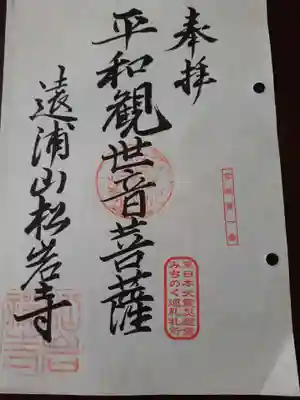 奉拝
宮城第一番
平和観世音菩薩
東日本大震災慰霊
みちのく巡礼札所
遠浦山松岩寺